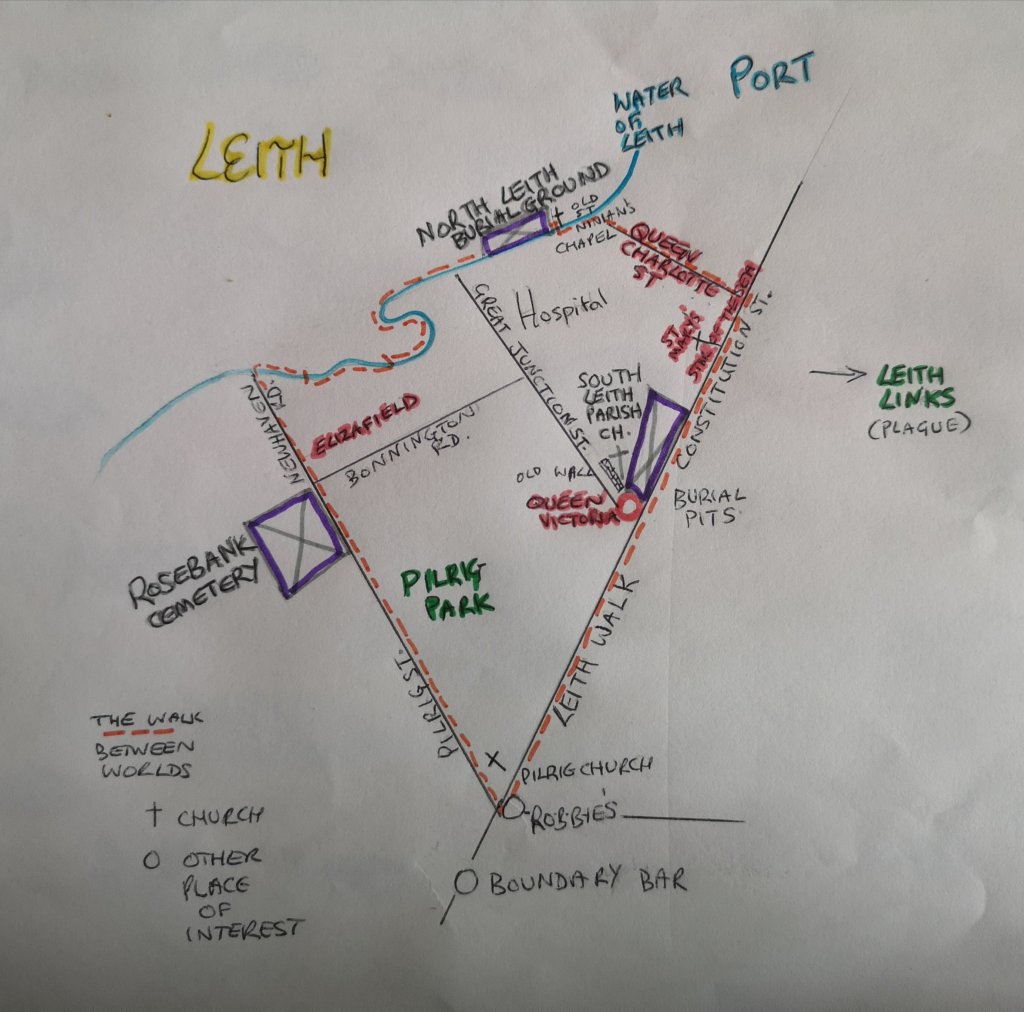 WATER
OF
LEITH
PORT
LEITH
NORTH LEITH
BURIAL GROUND
OLD
ST
NINIAN'S
CHAPEL
QUEEN
CHARLOTTE
ST
GREAT JUNCTION ST.
Hospital
ST
MARY'S
STAR OF THE SEA
CONSTITUTION ST.
LEITH
LINKS
(PLAGUE)
NEWHAVEN
RD.
ELIZAFIELD
BONNINGTON
RD.
SOUTH
LEITH
PARISH
CH.
OLD WALL
QUEEN
VICTORIA
BURIAL
PITS
ROSEBANK
CEMETERY
PILRIG
PARK
PILRIG ST.
LEITH WALK
THE WALK
BETWEEN
WORLDS
CHURCH
OTHER
PLACE
OF
INTEREST
PILRIG CHURCH
ROBBIE'S
BOUNDARY BAR